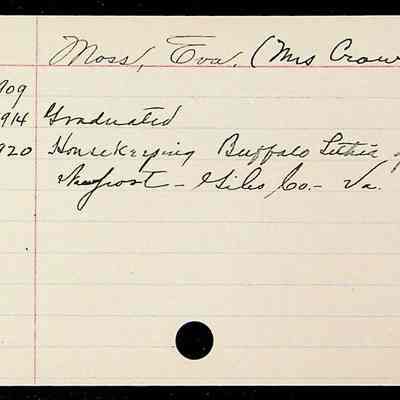 Moss, Eva. (Mrs Crow
909
1914 Graduated
1920 Housekeeping Buffalo Lithia
Newport - Giles Co. - Va.